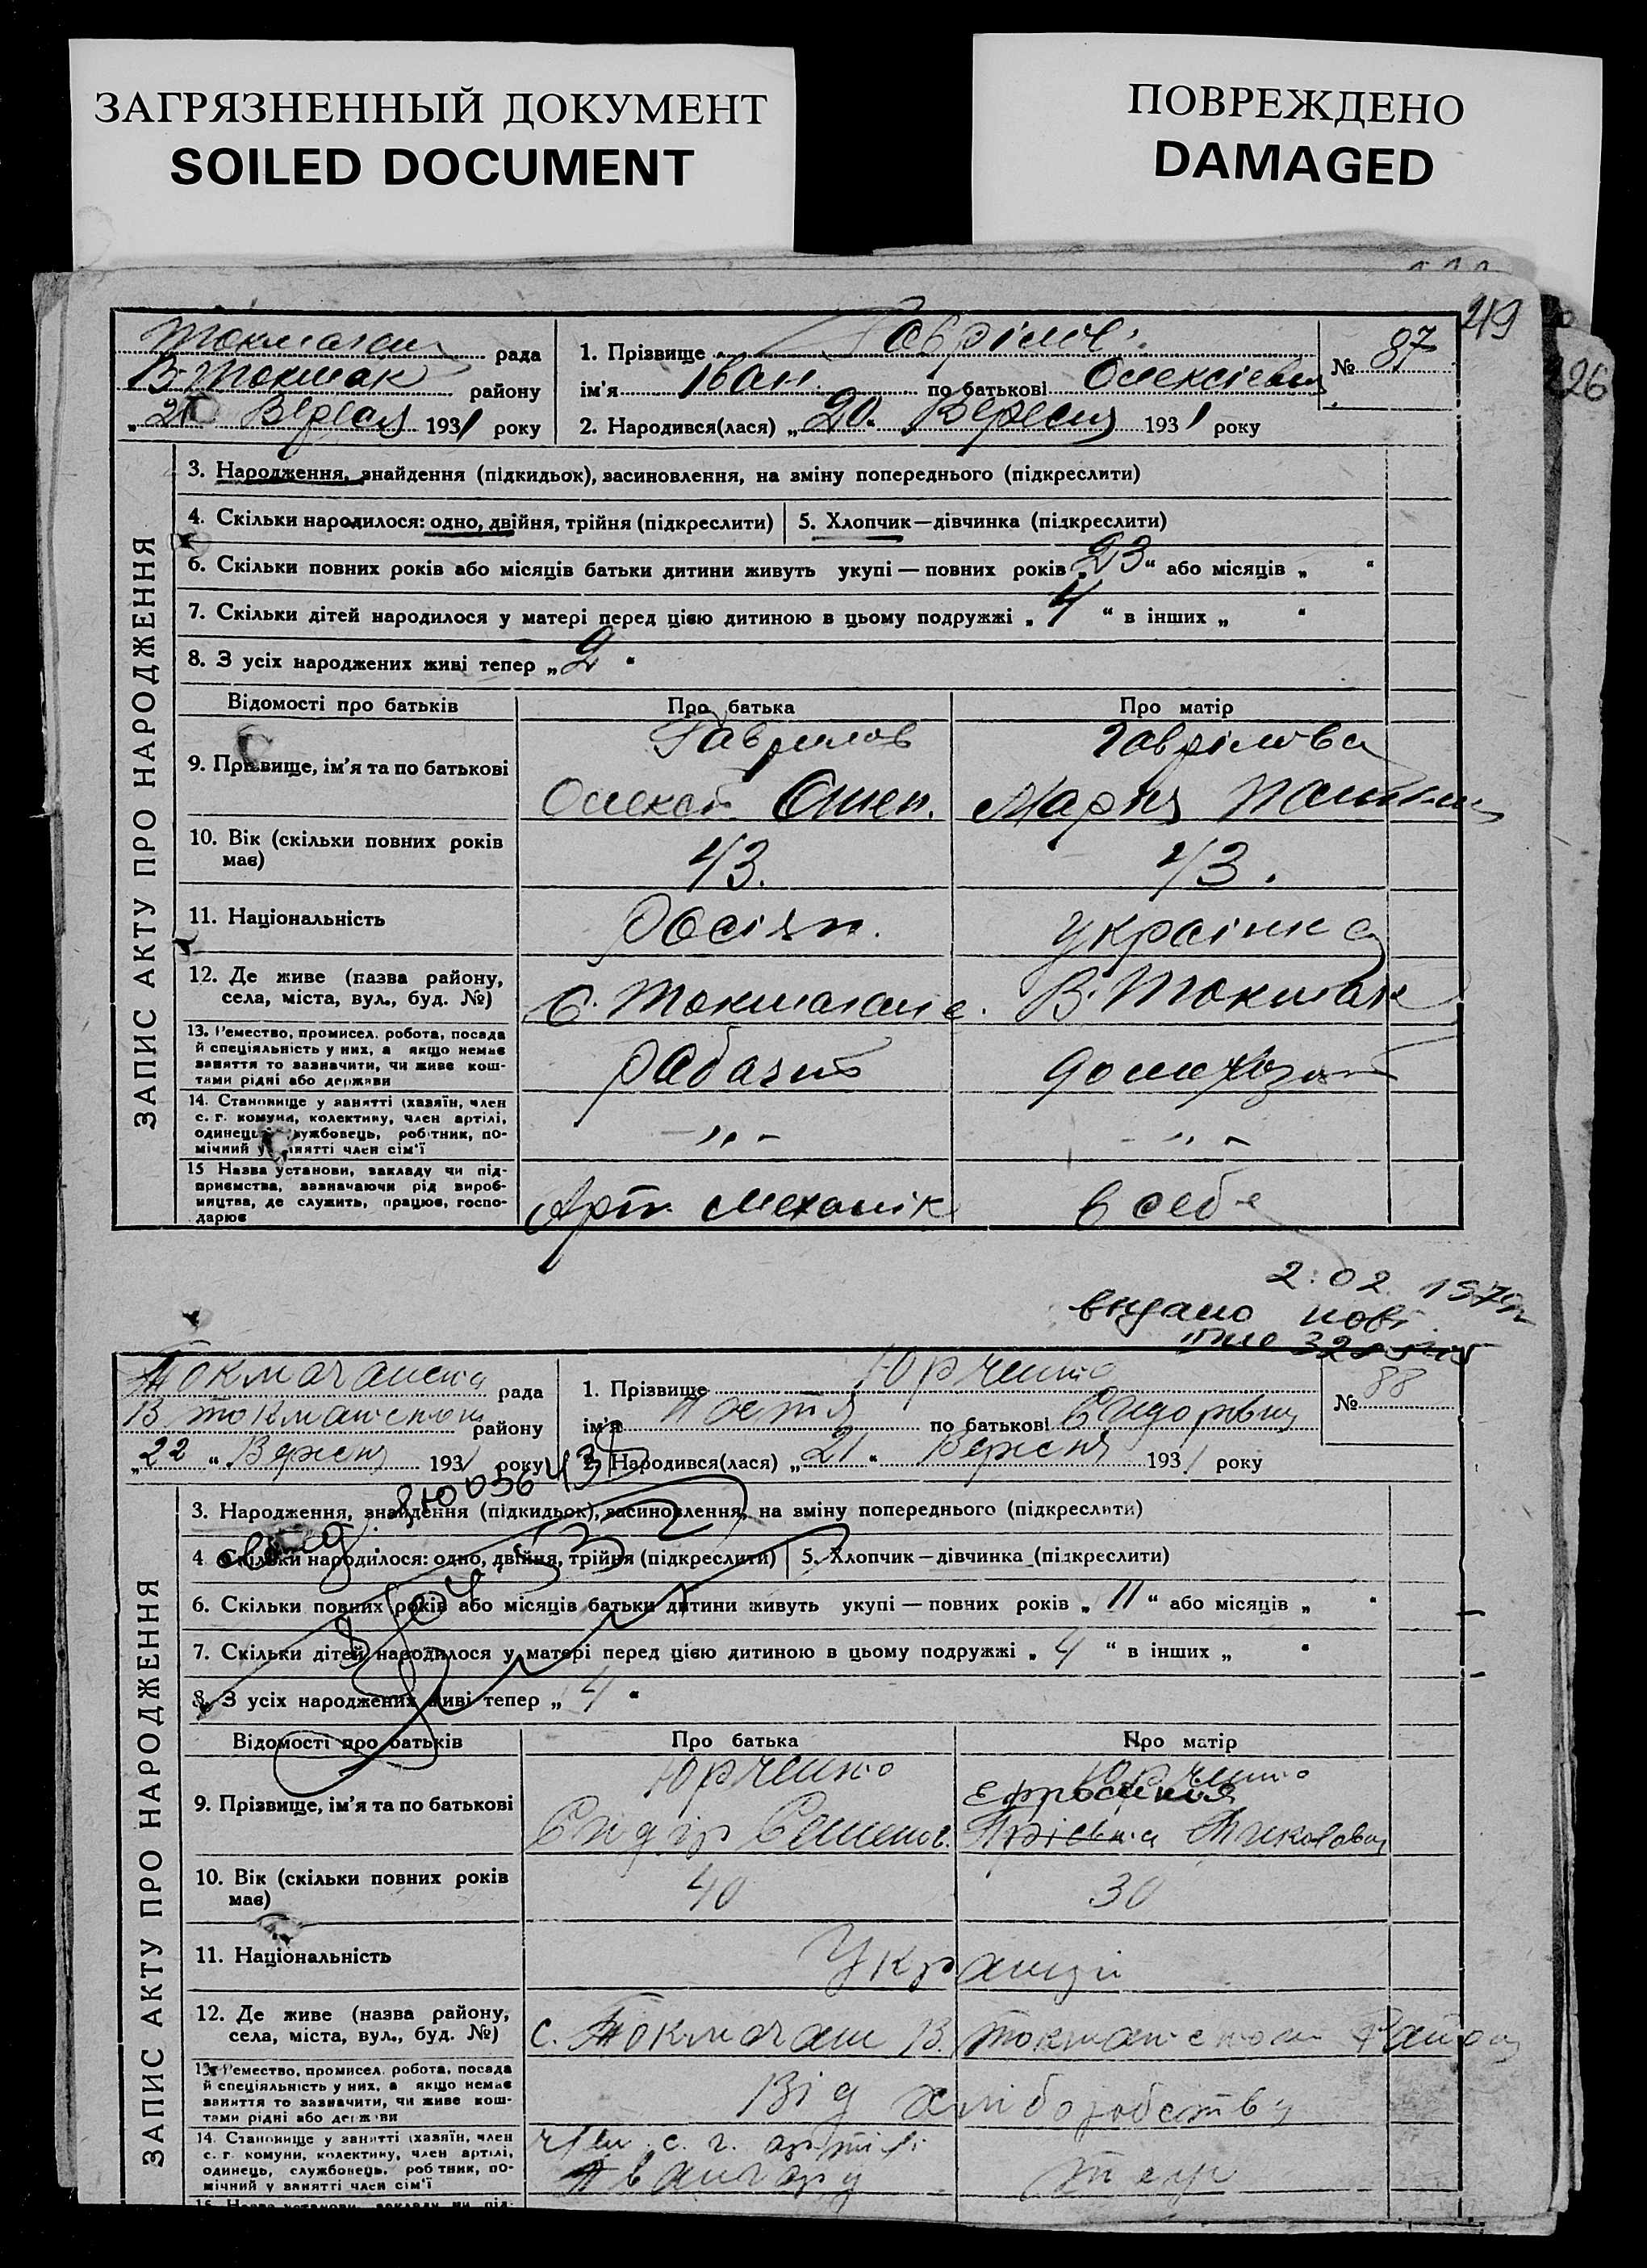 ЗАГРЯЗНЕННЫЙ ДОКУМЕНТ
SOILED DOCUMENT
ПОВРЕЖДЕНО
DAMAGED
49
26
рада
В-Токмак району
Вересня 1931 року
1. Прізвище Гаврілов
ім'я Іван по батькові Олексієвич
2. Народився(лася) „20“ Вересня 1931 року
№ 87
ЗАПИС АКТУ ПРО НАРОДЖЕННЯ
3. Народження, знайдення (підкидьок), засиновлення, на зміну попереднього (підкреслити)
4. Скільки народилося: одно, двійня, трійня (підкреслити)
5. Хлопчик—дівчинка (підкреслити)
6. Скільки повних років або місяців батьки дитини живуть укупі — повних років „23“ або місяців „ “
7. Скільки дітей народилося у матері перед цією дитиною в цьому подружжі „4“ в інших „ “
8. З усіх народжених живі тепер „2“
Відомості про батьків
Про батька
Про матір
9. Прізвище, ім'я та по батькові
Гаврилов
Гаврілова
Марія
10. Вік (скільки повних років має)
43.
43.
11. Національність
Росіян.
Українка
12. Де живе (назва району,
села, міста, вул., буд. №)
В. Токмак
13. Ремество, промисел, робота, посада
й спеціяльність у них, а якщо немає
заняття то зазначити, чи живе кош-
тами рідні або держави
14. Становище у занятті (хазяїн, член
с. г. комуни, колективу, член артілі,
одинець, службовець, робітник, по-
мічний у занятті член сім'ї
-„-
-„-
15 Назва установи, закладу чи під-
приємства, зазначаючи рід вироб-
ництва, де служить, працює, госпо-
дарює
Арт. Механік
в себе
2.02.
видано нові
рада
району
„22“ Вересня 1931 року
1. Прізвище Юрченко
ім'я по батькові Сидоровна
2. Народився(лася) „21“ Вересня 1931 року
№ 88
ЗАПИС АКТУ ПРО НАРОДЖЕННЯ
3. Народження, знайдення (підкидьок), засиновлення, на зміну попереднього (підкреслити)
4 Скільки народилося: одно, двійня, трійня (підкреслити)
5. Хлопчик—дівчинка (підкреслити)
6. Скільки повних років або місяців батьки дитини живуть укупі — повних років „11“ або місяців „ “
7. Скільки дітей народилося у матері перед цією дитиною в цьому подружжі „4“ в інших „ “
8. З усіх народжених живі тепер „4“
Відомості про батьків
Про батька
Про матір
9. Прізвище, ім'я та по батькові
Юрченко
Юрченко
Сидір Семенов.
10. Вік (скільки повних років має)
40
30
11. Національність
Українці
12. Де живе (назва району,
села, міста, вул., буд. №)
с.
13. Ремество, промисел, робота, посада
й спеціяльність у них, а якщо немає
заняття то зазначити, чи живе кош-
тами рідні або держави
Від хліборобства
14. Становище у занятті (хазяїн, член
с. г. комуни, колективу, член артілі,
одинець, службовець, робітник, по-
мічний у занятті член сім'ї
член с. г. артілі